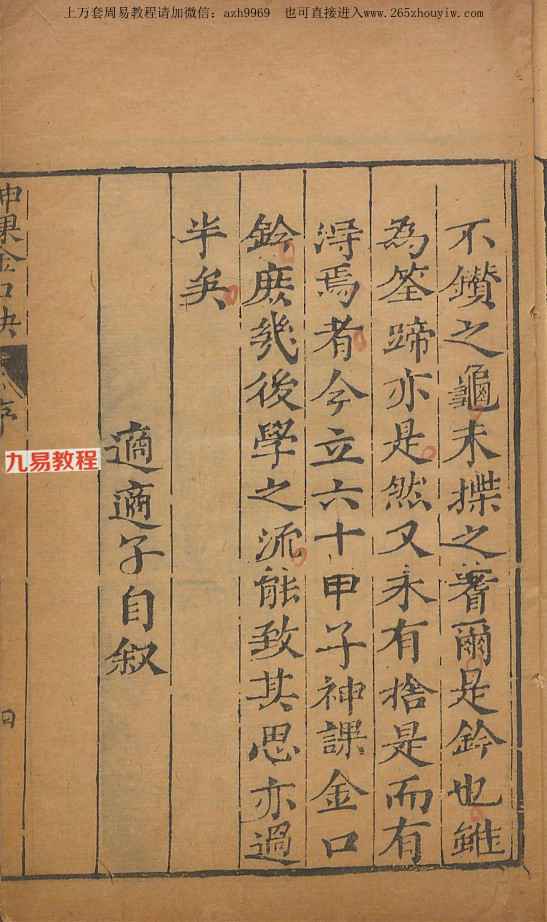 上万套周易教程请加微信：azh9969 也可直接进入www.265zhouyiw.com
不鑚之龜未揲之蓍爾是鈐也雖
為筌蹄亦是然又未有捨是而有
得焉者今立六十甲子神課金口
鈐庶幾後學之流能致其思亦過
半矣
適適子自叙
神課金口訣
序
四
九易教程